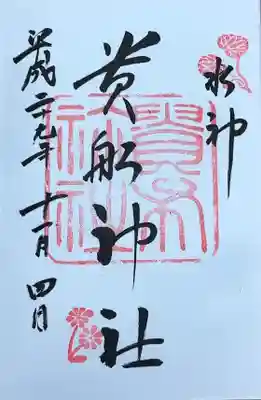 水神
貴船神社
平成二九年十一月四日